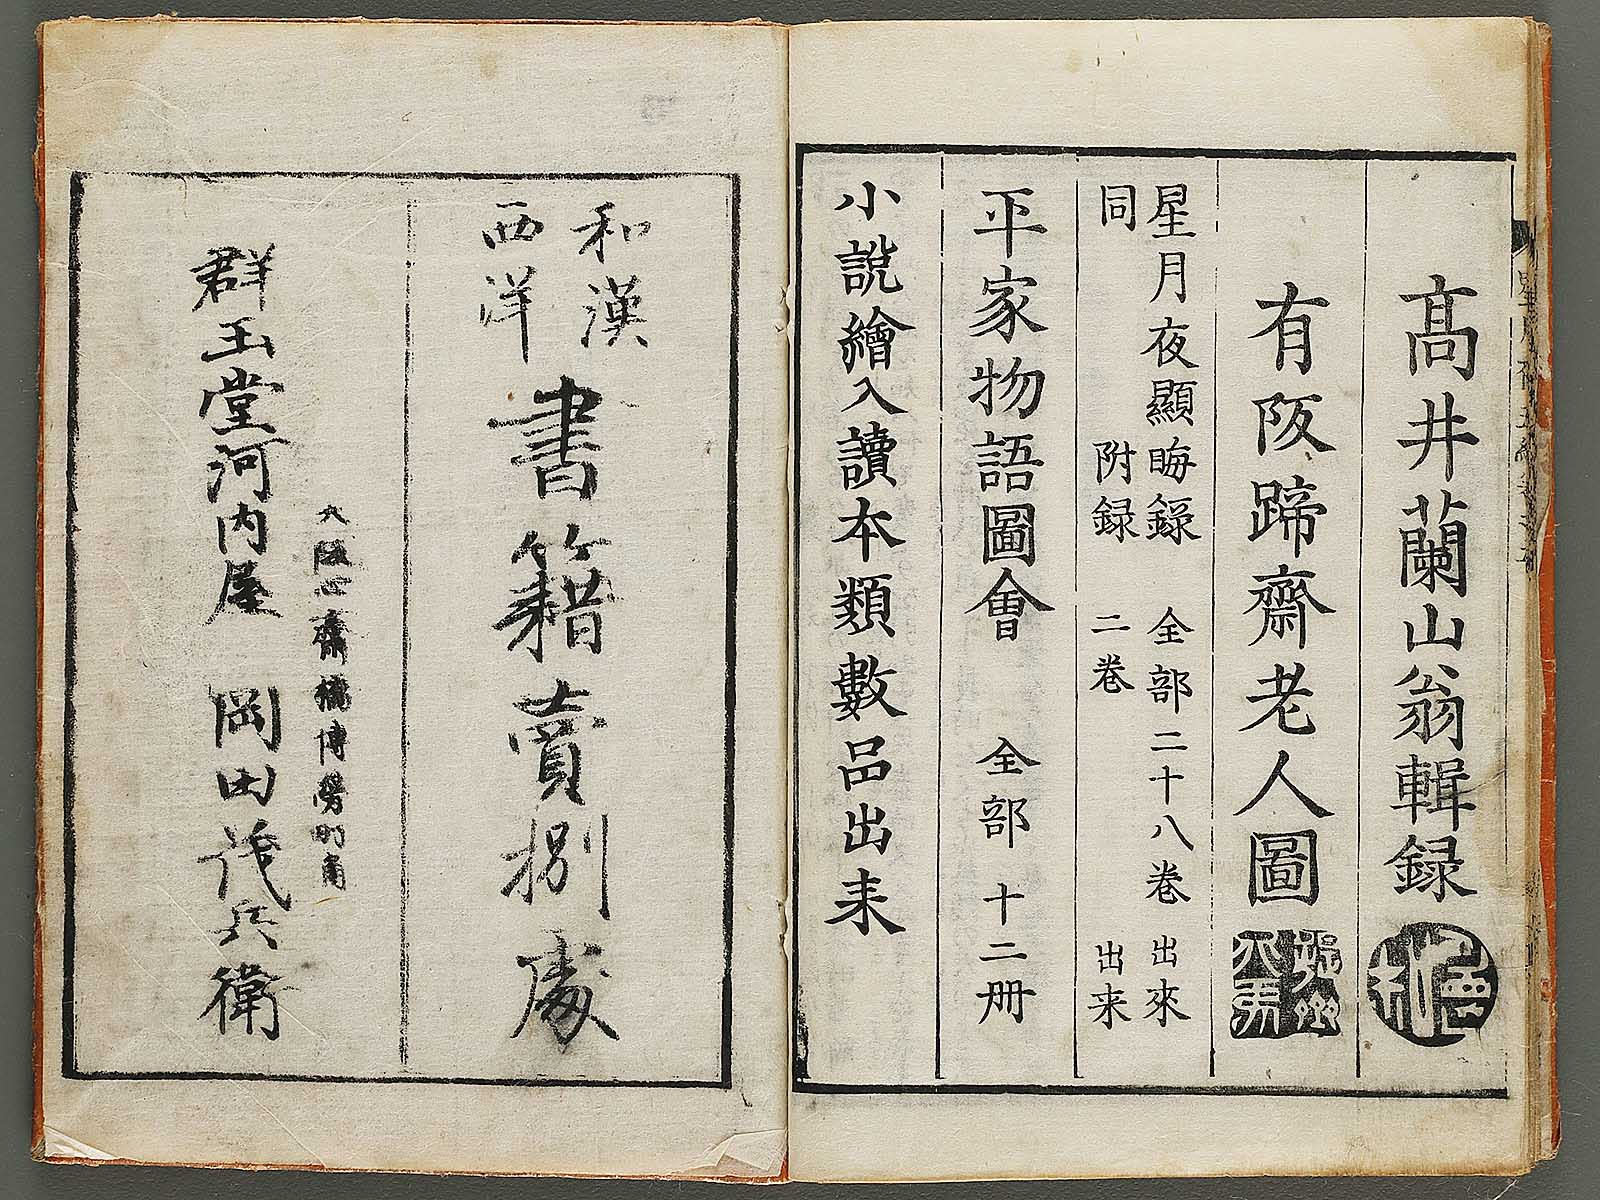 高井蘭山翁輯録
有阪蹄齋老人圖
星月夜顯晦録 全部二十八巻 出來
同 附録 二巻 出来
平家物語圖會 全部 十二册
小説繪入讀本類數品出来
和漢
西洋
書籍賣捌處
大阪心齋橋博勞町角
群玉堂河内屋 岡田茂兵衛